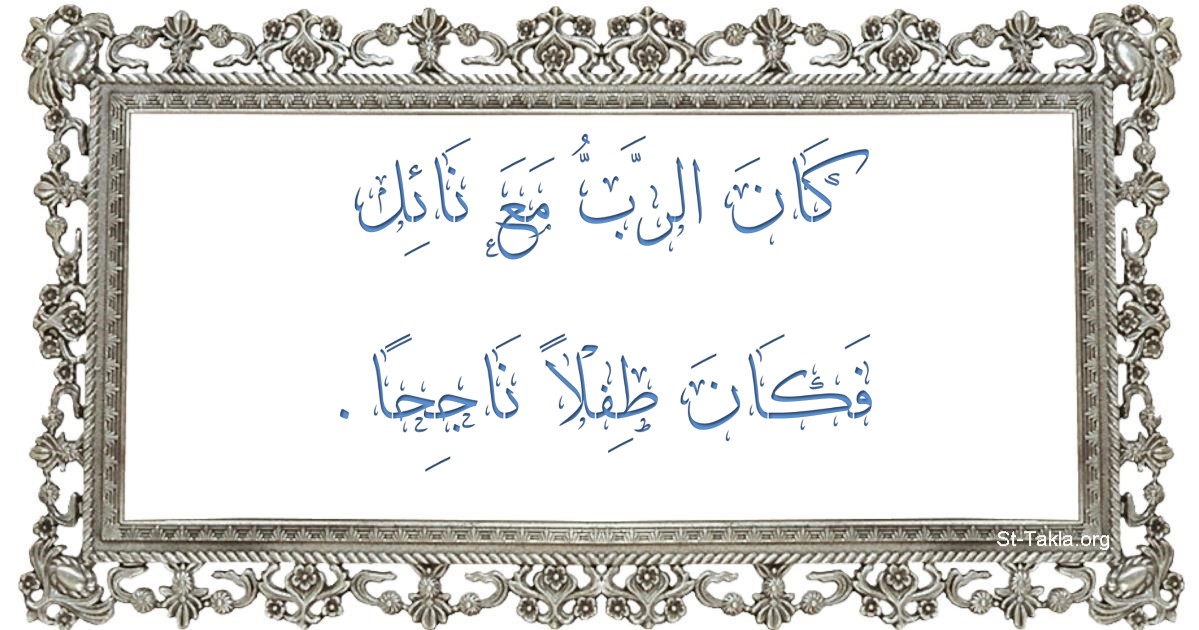 كَانَ الرَّبُّ مَعَ نَائِل
فَكَانَ طِفْلاً نَاجِحًا .
St-Takla.org